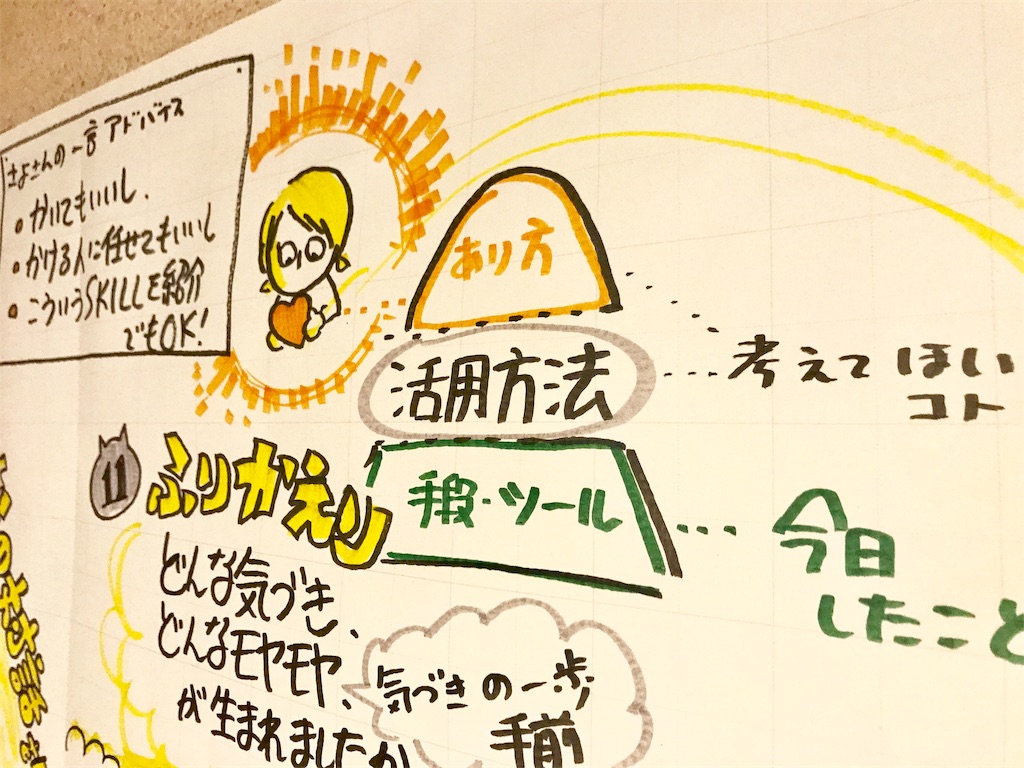 きよさんの一言アドバイス
・かいてもいいし、
・かける人に任せてもいいし
・こういうSKILLを紹介
でもOK!
あり方
活用方法
考えてほしい
コト
手段・ツール
今日
したこと
11 ふりかえり
どんな気づき、
どんなモヤモヤ、
が生まれましたか
気づきの一歩
手前